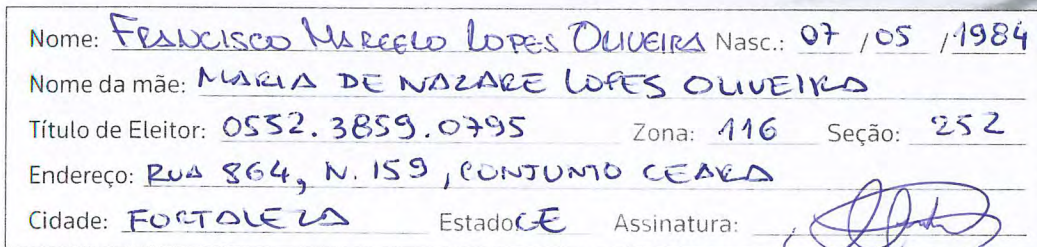 Nome: FRANCISCO MARCELO LOPES OLIVEIRA Nasc.: 07 / 05 / 1984
Nome da mãe: MARIA DE NAZARE LOPES OLIVEIRA
Título de Eleitor: 0552.3859.0795 Zona: 116 Seção: 252
Endereço: RUA 864, N. 159, CONJUNTO CEARA
Cidade: FORTALEZA Estado CE Assinatura: